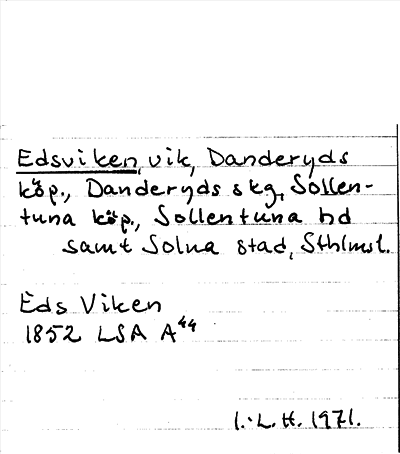 Edsviken, vik, Danderyds
köp., Danderyds skg, Sollen-
tuna köp., Sollentuna hd
samt Solna stad, Sthlmsl.
Eds Viken
1852 LSA A44
I.L.H. 1971.